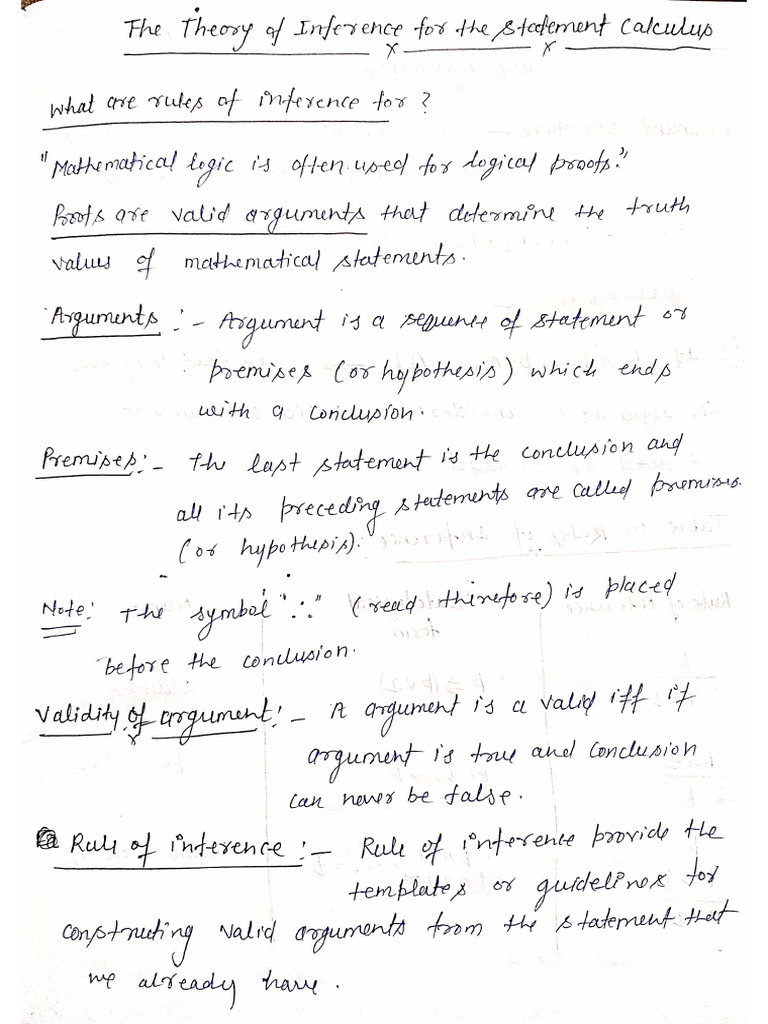 The Theory of Inference for the Statement Calculus
What are rules of inference for?
"Mathematical logic is often used for logical proofs."
Proofs are valid arguments that determine the truth
values of mathematical statements.
Arguments :- Argument is a sequence of statement or
premises (or hypothesis) which ends
with a conclusion.
Premises:- The last statement is the conclusion and
all its preceding statements are called premises.
(or hypothesis).
Note: The symbol "∴" (read therefore) is placed
before the conclusion.
Validity of argument:- A argument is a valid iff if
argument is true and conclusion
can never be false.
Rule of inference :- Rule of inference provide the
templates or guidelines for
constructing valid arguments from the statement that
we already have.